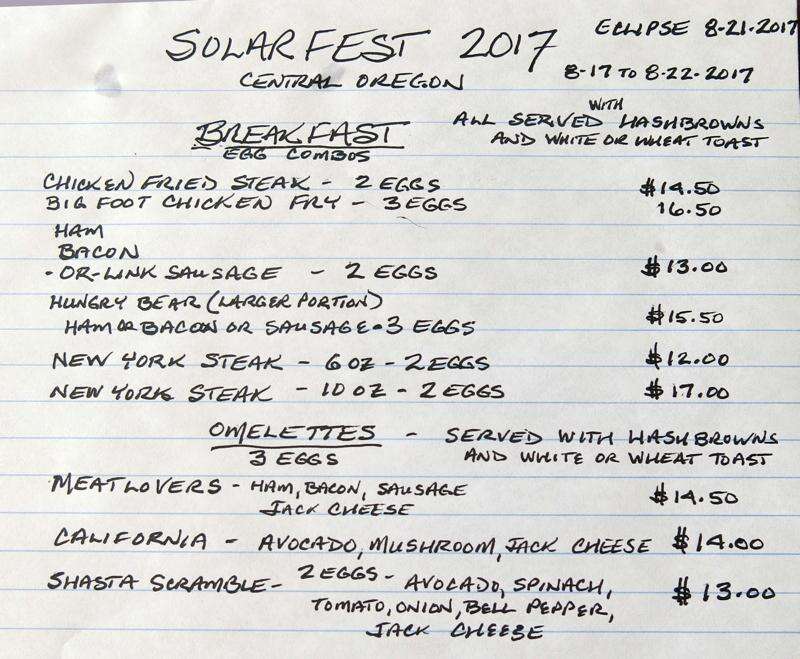 SOLARFEST 2017
ECLIPSE 8-21-2017
CENTRAL OREGON
8-17 TO 8-22-2017
BREAKFAST
EGG COMBOS
ALL SERVED WITH HASHBROWNS
AND WHITE OR WHEAT TOAST
CHICKEN FRIED STEAK - 2 EGGS $14.50
BIG FOOT CHICKEN FRY - 3 EGGS 16.50
HAM
BACON
- OR-LINK SAUSAGE - 2 EGGS $13.00
HUNGRY BEAR (LARGER PORTION)
HAM OR BACON OR SAUSAGE - 3 EGGS $15.50
NEW YORK STEAK - 6 OZ - 2 EGGS $12.00
NEW YORK STEAK - 10 OZ - 2 EGGS $17.00
OMELETTES - SERVED WITH HASHBROWNS
3 EGGS AND WHITE OR WHEAT TOAST
MEATLOVERS - HAM, BACON, SAUSAGE
JACK CHEESE $14.50
CALIFORNIA - AVOCADO, MUSHROOM, JACK CHEESE $14.00
SHASTA SCRAMBLE - 2 EGGS - AVOCADO, SPINACH, $13.00
TOMATO, ONION, BELL PEPPER,
JACK CHEESE